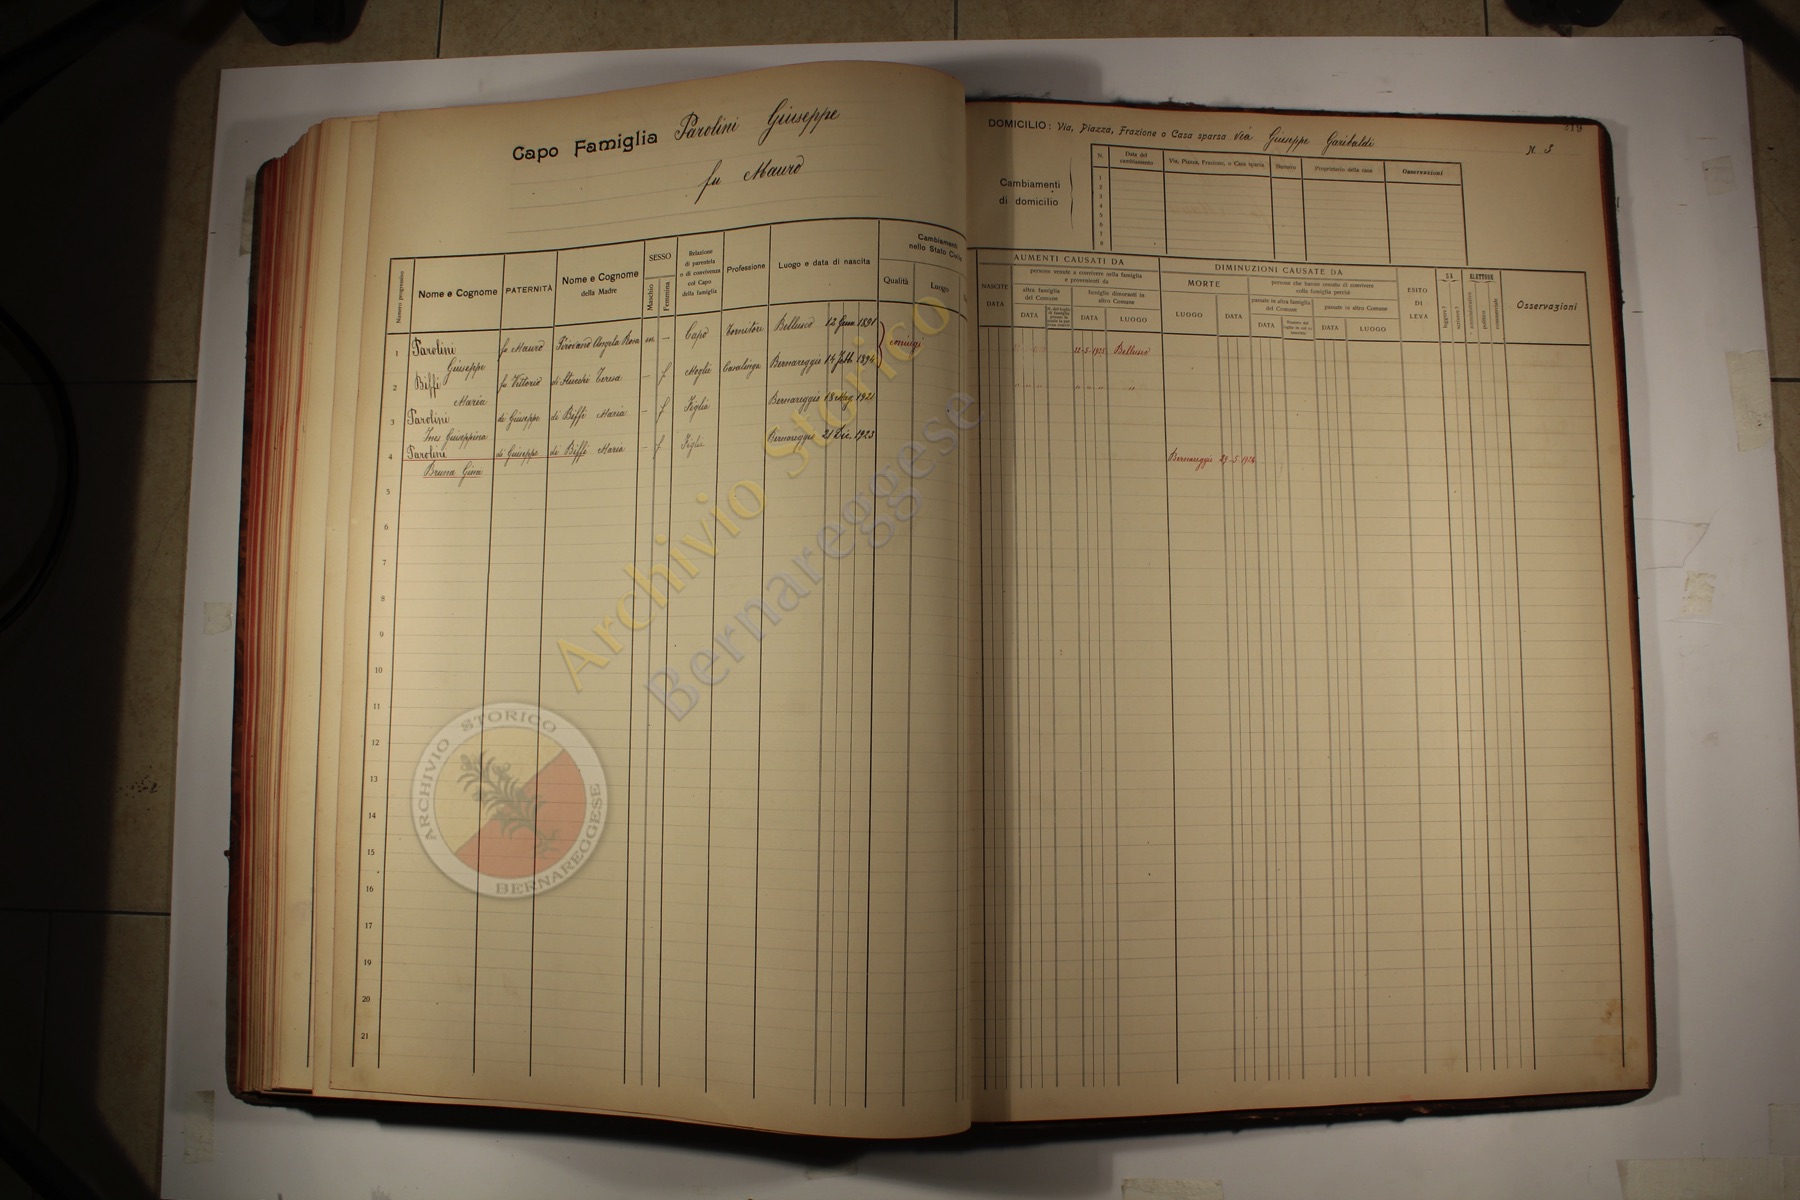 Capo Famiglia Parolini Giuseppe
fu Mauro
Numero progressivo
Nome e Cognome
PATERNITÀ
Nome e Cognome
della Madre
SESSO
Maschio
Femmina
Relazione
di parentela
o di convivenza
col Capo
della famiglia
Professione
Luogo e data di nascita
Cambiamenti
nello Stato Civile
Qualità
Luogo
1 Parolini fu Mauro Angela Rosa m — Capo Bellusco 12 1891
Giuseppe
coniugi
2 Biffi fu Vittorio di Teresa — f Moglie Casalinga Bernareggio 14 Febb. 1894
Maria
3 Parolini di Giuseppe di Biffi Maria — f Figlia Bernareggio 18 Mag. 1921
Ines Giuseppina
4 Parolini di Giuseppe di Biffi Maria — f Figlia Bernareggio 21 Dic. 1923
Bruna Gina
5
6
7
8
9
10
11
12
13
14
15
16
17
18
19
20
21
219
DOMICILIO: Via, Piazza, Frazione o Casa sparsa Via Giuseppe Garibaldi N. 3
Cambiamenti
di domicilio
N.
Data del
cambiamento
Via, Piazza, Frazione, o Casa sparsa
Numero
Proprietario della casa
Osservazioni
1
2
3
4
5
6
7
8
AUMENTI CAUSATI DA
NASCITE
DATA
persone venute a convivere nella famiglia
e provenienti da
altra famiglia
del Comune
DATA
famiglie dimoranti in
altro Comune
DATA
LUOGO
DIMINUZIONI CAUSATE DA
MORTE
LUOGO
DATA
persone che hanno cessato di convivere
colla famiglia perchè
passate in altra famiglia
del Comune
DATA
passate in altro Comune
DATA
LUOGO
ESITO
DI
LEVA
SA
leggere?
scrivere?
ELETTORE
amministrativo
politico
commerciale
Osservazioni
22-5-1925 Bellusco
" " " "
Bernareggio 29-5-1924
Archivio Storico
Bernareggese
ARCHIVIO STORICO
BERNAREGGESE